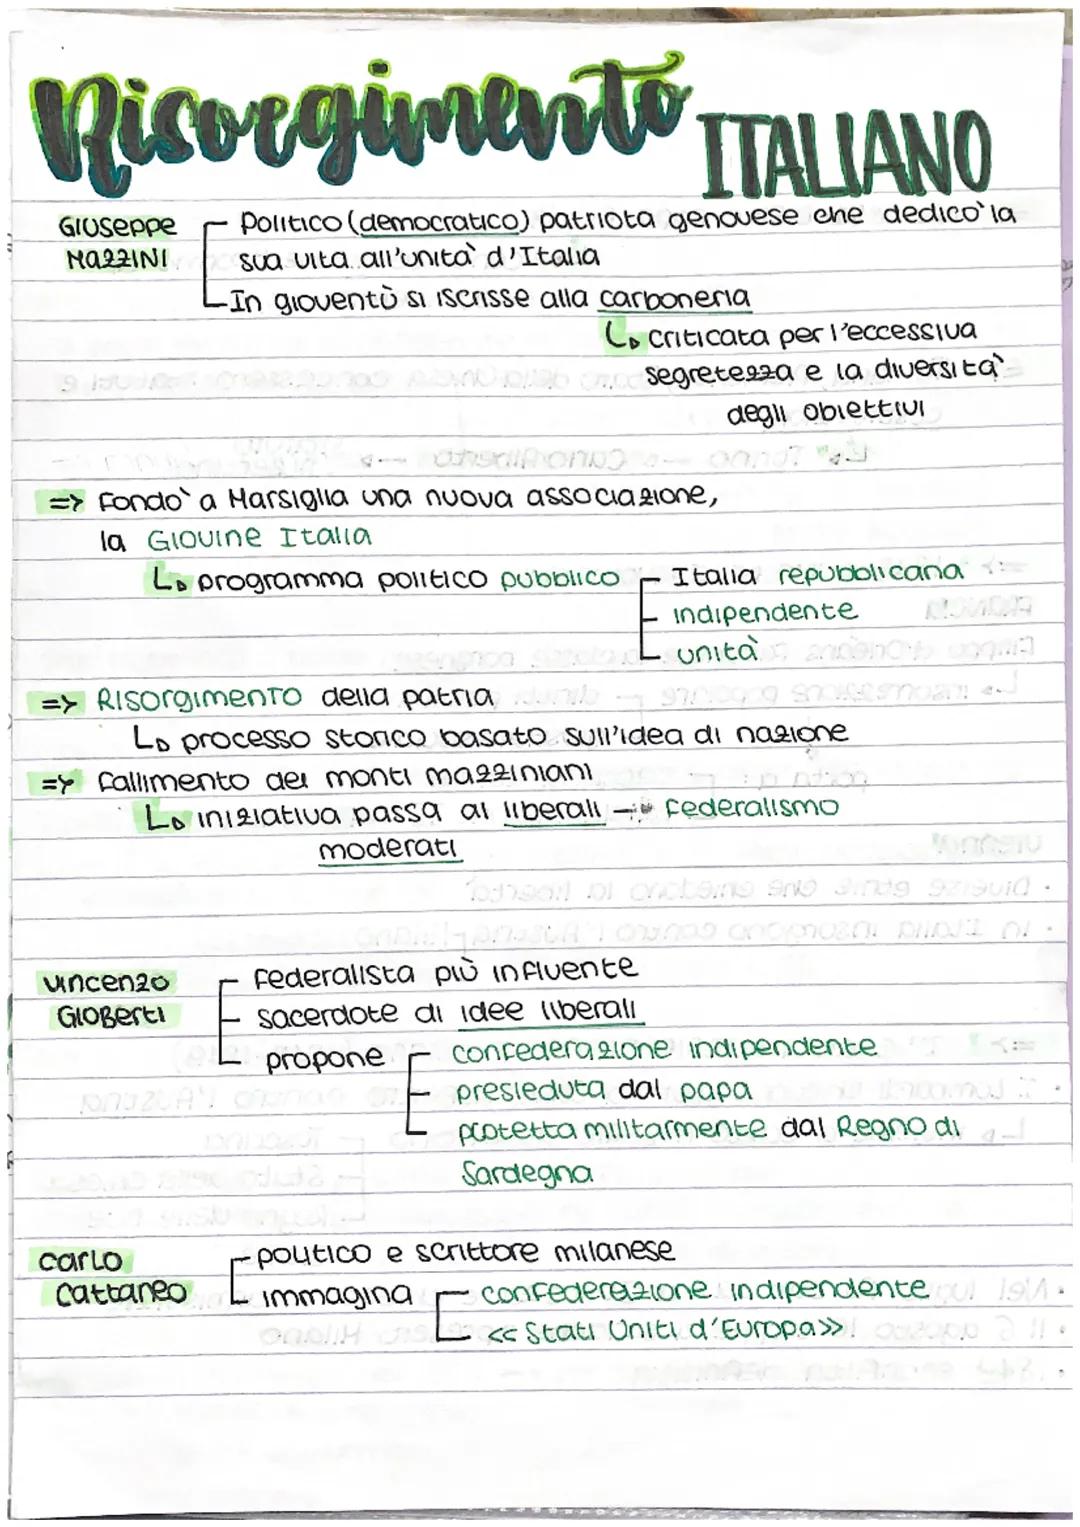 Risorgimento ITALIANO
Giuseppe Mazzini
Politico (democratico) patriota genovese che dedico' la
sua vita all'unità d'Italia
In gioventù si iscrisse alla carboneria
criticata per l'eccessiva
segretezza e la diversità
degli obiettivi
=> Fondo' a Marsiglia una nuova associazione,
la Giovine Italia
programma politico pubblico
Italia repubblicana
indipendente
unità
=> Risorgimento della patria
processo storico basato sull'idea di nazione
=> fallimento dei monti mazziniani
iniziativa passa ai liberali → Federalismo
moderati
Vincenzo Gioberti
Federalista più influente
sacerdote di idee liberali
propone
confederazione indipendente
presieduta dal papa
protetta militarmente dal Regno di
Sardegna
Carlo Cattaneo
politico e scrittore milanese
immagina
confederazione indipendente
<< Stati Uniti d'Europa>>